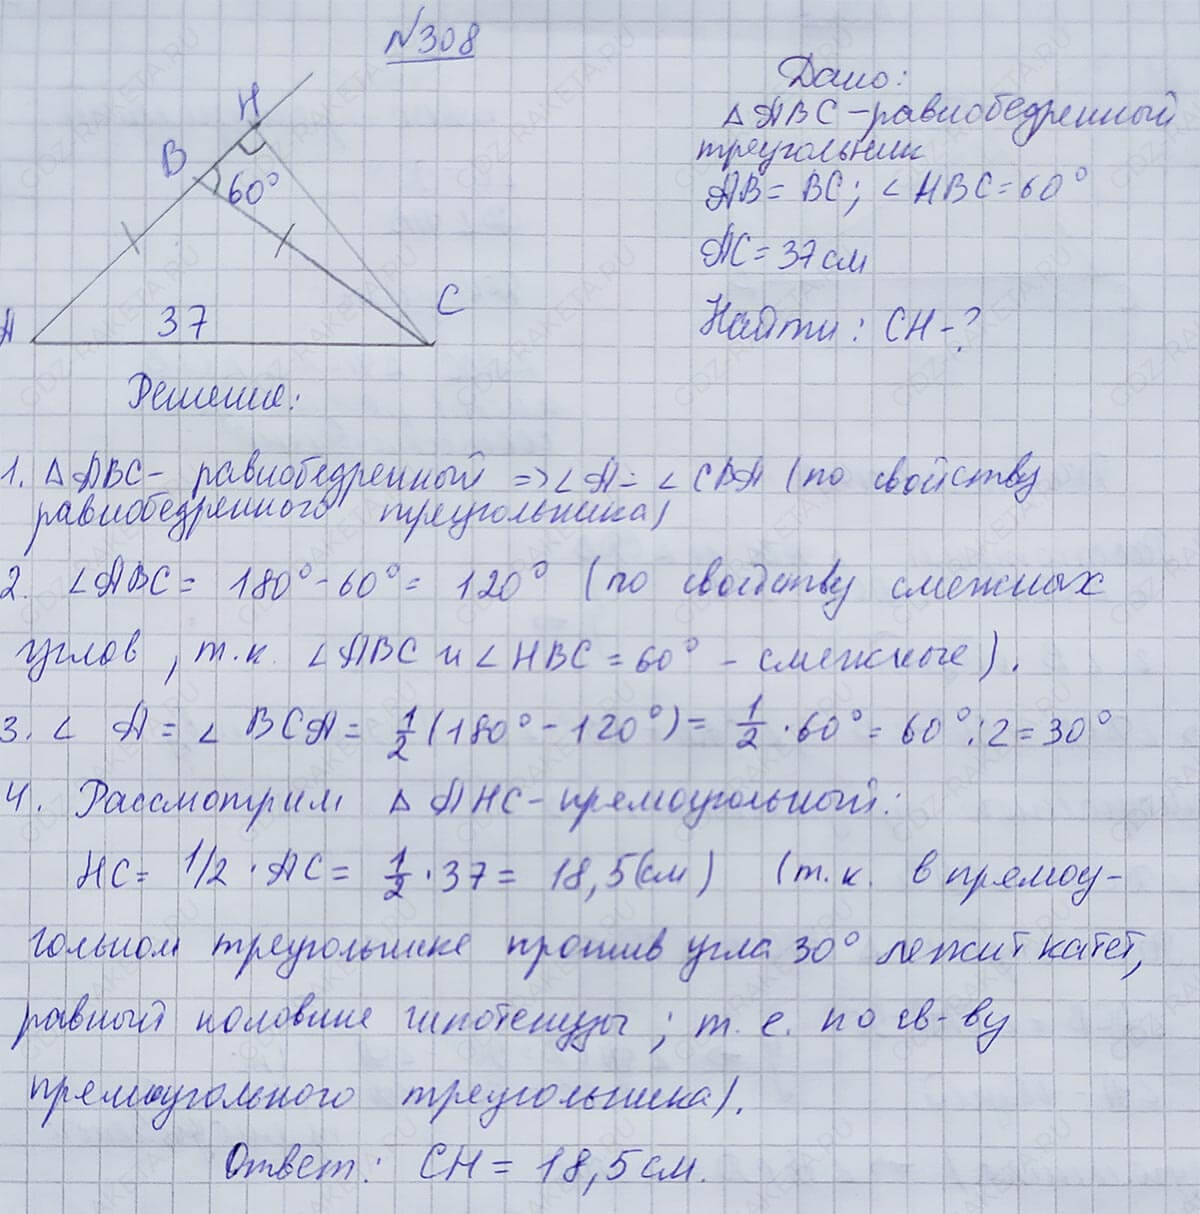 №308
H
B
60°
A
37
C
Дано:
△ABC – равнобедренный
треугольник
AB = BC; ∠HBC = 60°
AC = 37 см
Найти: CH - ?
Решение:
1. △ABC – равнобедренный => ∠A = ∠CBA (по свойству
равнобедренного треугольника)
2. ∠ABC = 180° - 60° = 120° (по свойству смежных
углов, т.к. ∠ABC и ∠HBC = 60° - смежные).
3. ∠A = ∠BCA = 1/2 (180° - 120°) = 1/2 · 60° = 60° : 2 = 30°
4. Рассмотрим △AHC - прямоугольный:
HC = 1/2 · AC = 1/2 · 37 = 18,5 (см) (т.к. в прямоу-
гольном треугольнике против угла 30° лежит катет,
равный половине гипотенузы; т.е. по св-ву
прямоугольного треугольника).
Ответ: CH = 18,5 см.
GDZ-RAKETA.RU